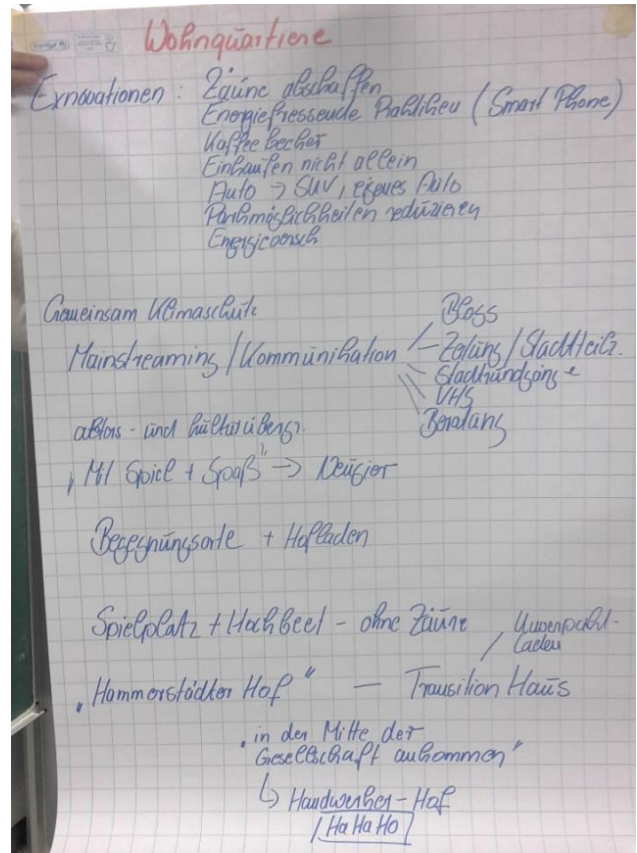 Wohnquartiere
Exnovationen: Zäune abschaffen
Energiefressende Praktiken (Smart Phone)
Kaffeebecher
Einkaufen nicht allein
Auto → SUV, eigenes Auto
Parkmöglichkeiten reduzieren
Gemeinsam Klimaschutz
Blogs
Mainstreaming / Kommunikation – Zeitung / Stadtteilz.
Stadtrundgänge
VHS
Beratung
alters- und kulturüberg.
„Mit Spiel + Spaß" → Neugier
Begegnungsorte + Hofladen
Spielplatz + Hochbeet – ohne Zäune
Unverpackt-
laden
„Hammerstädter Hof" — Transition Haus
„in der Mitte der
Gesellschaft ankommen"
↳ Handwerker-Hof
HaHaHo